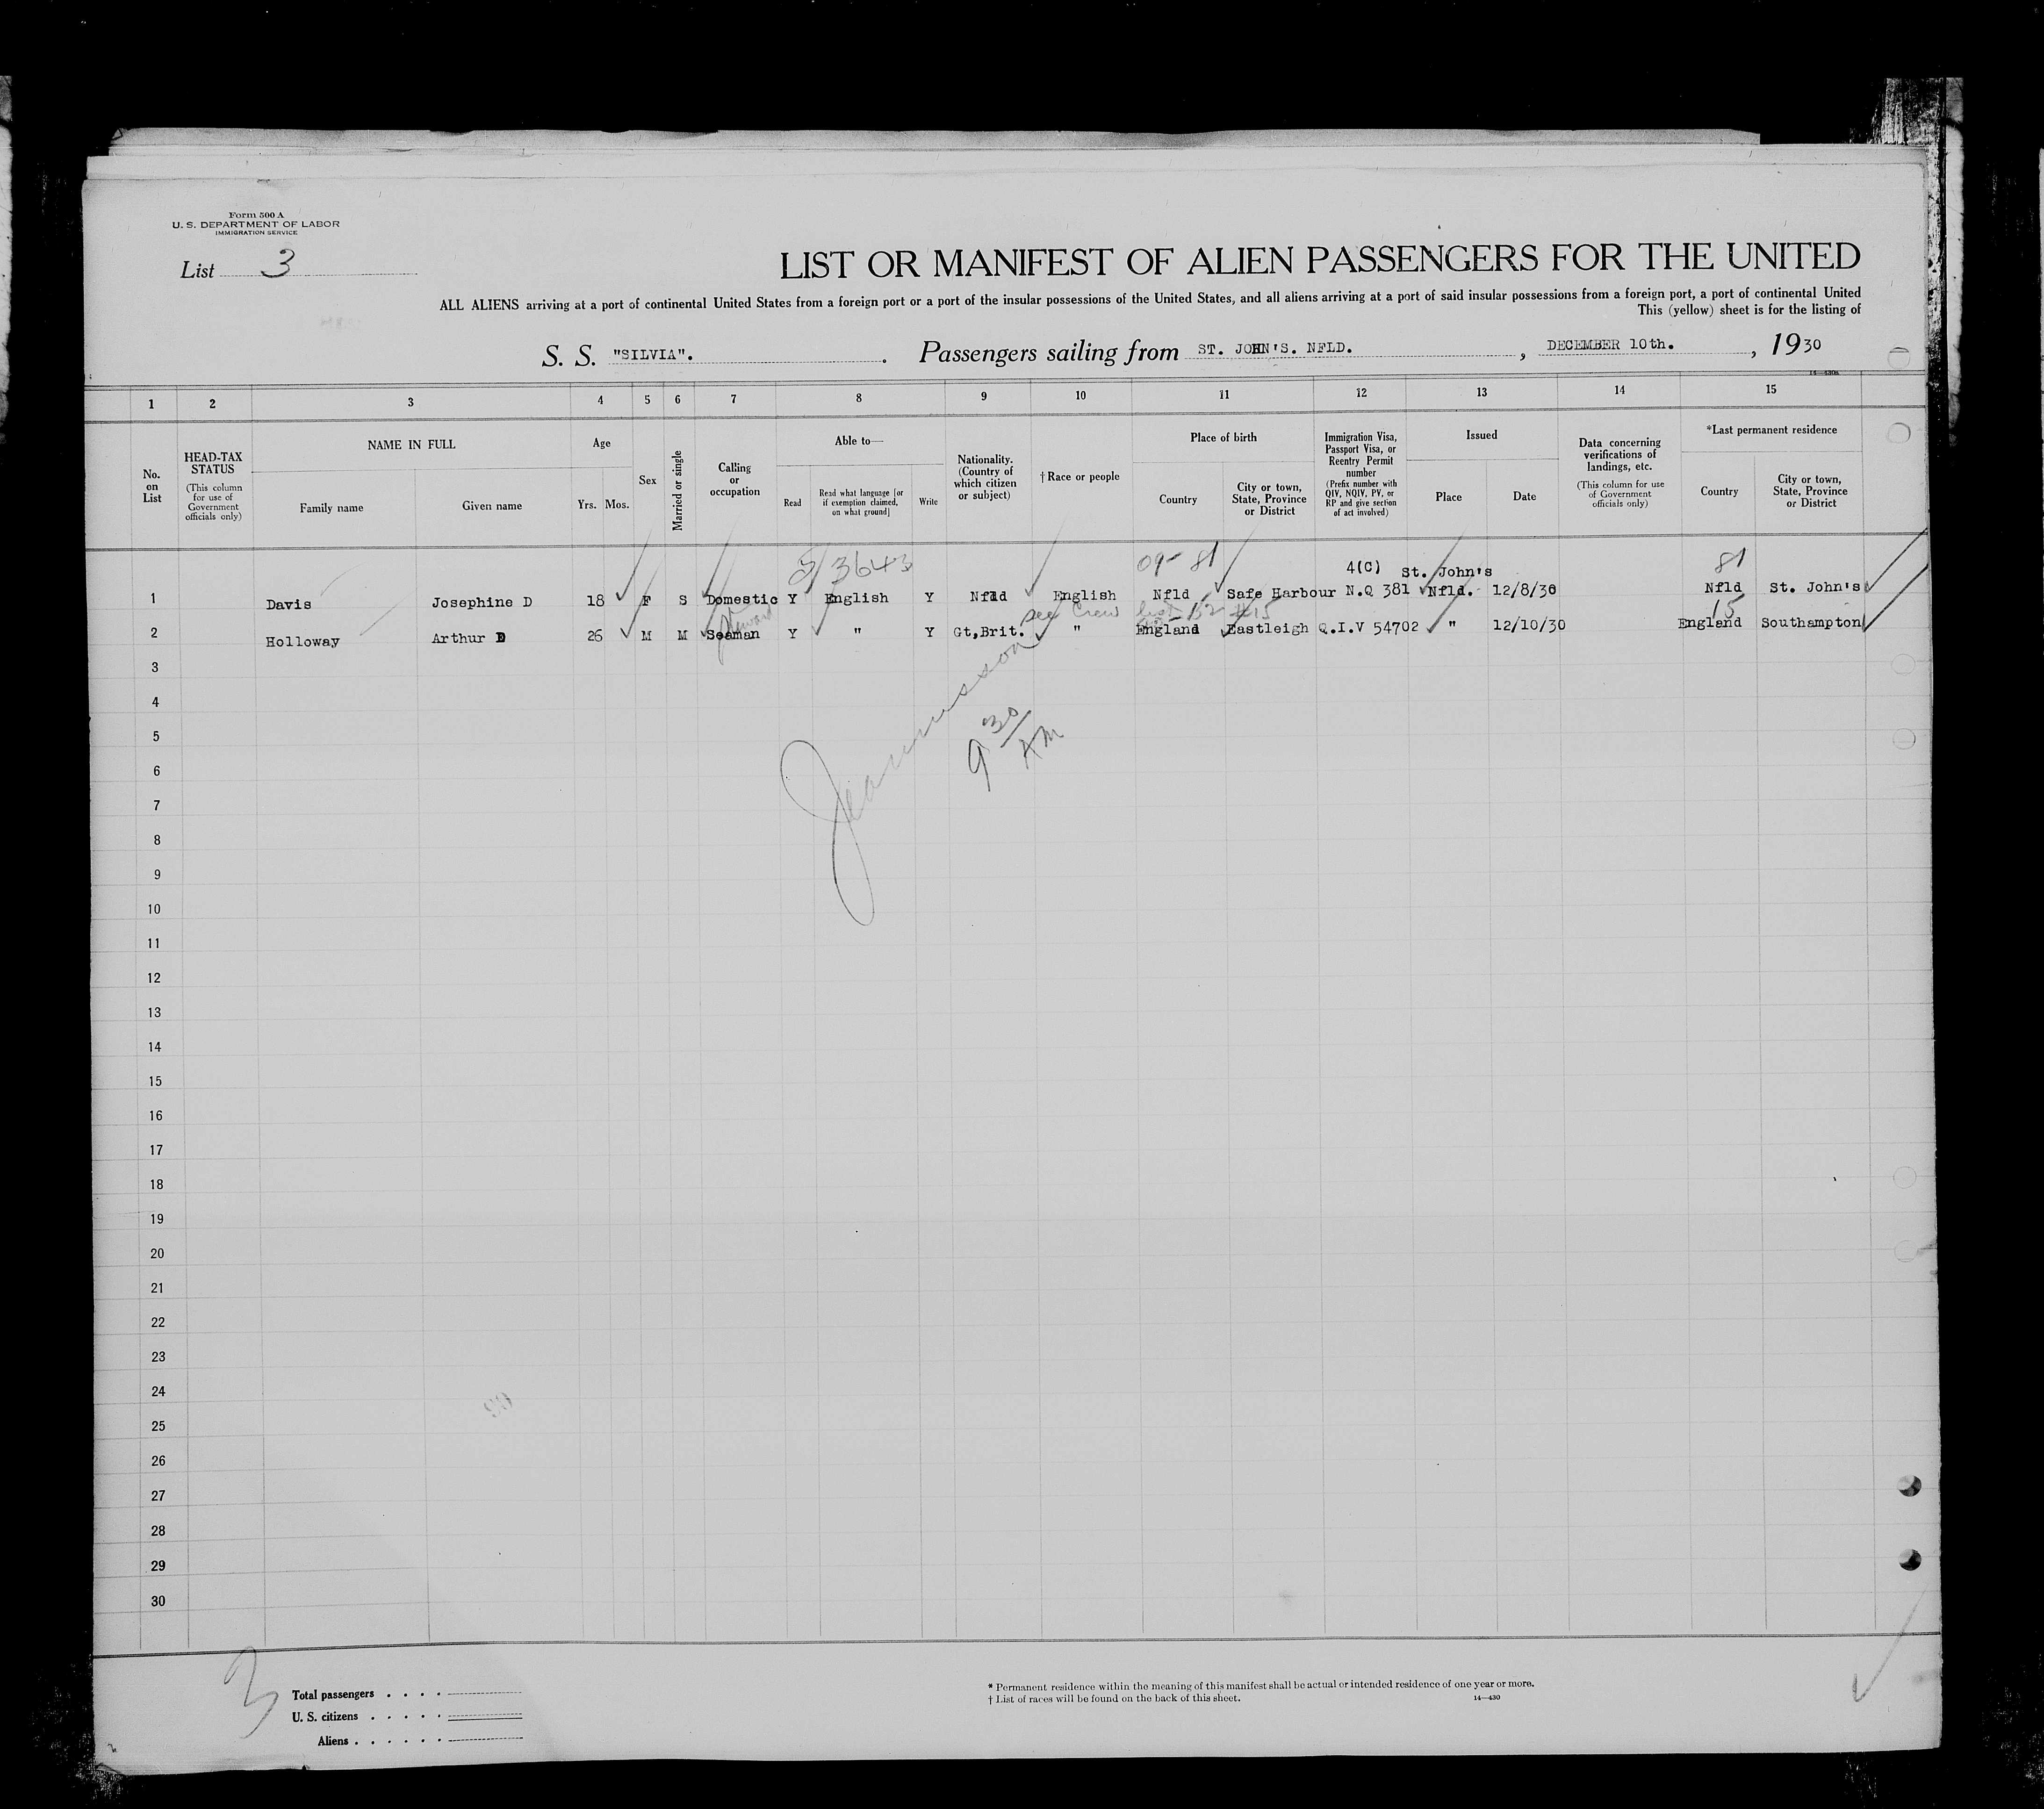 Form 500 A
U. S. DEPARTMENT OF LABOR
IMMIGRATION SERVICE
List 3
LIST OR MANIFEST OF ALIEN PASSENGERS FOR THE UNITED
ALL ALIENS arriving at a port of continental United States from a foreign port or a port of the insular possessions of the United States, and all aliens arriving at a port of said insular possessions from a foreign port, a port of continental United
This (yellow) sheet is for the listing of
S. S. "SILVIA". Passengers sailing from ST. JOHN'S. NFLD. , DECEMBER 10th. , 1930
1 2 3 4 5 6 7 8 9 10 11 12 13 14 15
No. on List
HEAD-TAX STATUS
(This column for use of Government officials only)
NAME IN FULL
Family name
Given name
Age
Yrs. Mos.
Sex
Married or single
Calling or occupation
Able to—
Read
Read what language [or if exemption claimed, on what ground]
Write
Nationality. (Country of which citizen or subject)
† Race or people
Place of birth
Country
City or town, State, Province or District
Immigration Visa, Passport Visa, or Reentry Permit number
(Prefix number with QIV, NQIV, PV, or RP and give section of act involved)
Issued
Place
Date
Data concerning verifications of landings, etc.
(This column for use of Government officials only)
*Last permanent residence
Country
City or town, State, Province or District
3643 09- 81 4(C) St. John's 81
1 Davis Josephine D 18 F S Domestic Y English Y Nfld English Nfld Safe Harbour N.Q 381 Nfld. 12/8/30 Nfld St. John's
Steward see Crew list #15 15
2 Holloway Arthur D 26 M M Seaman Y " Y Gt,Brit. " England Eastleigh Q.I.V 54702 " 12/10/30 England Southampton
3
4
5
9 30/AM
6
7
8
9
10
11
12
13
14
15
16
17
18
19
20
21
22
23
24
25
26
27
28
29
30
3
Total passengers . . . .
U. S. citizens . . . . .
Aliens . . . . . .
* Permanent residence within the meaning of this manifest shall be actual or intended residence of one year or more.
† List of races will be found on the back of this sheet.
14—430